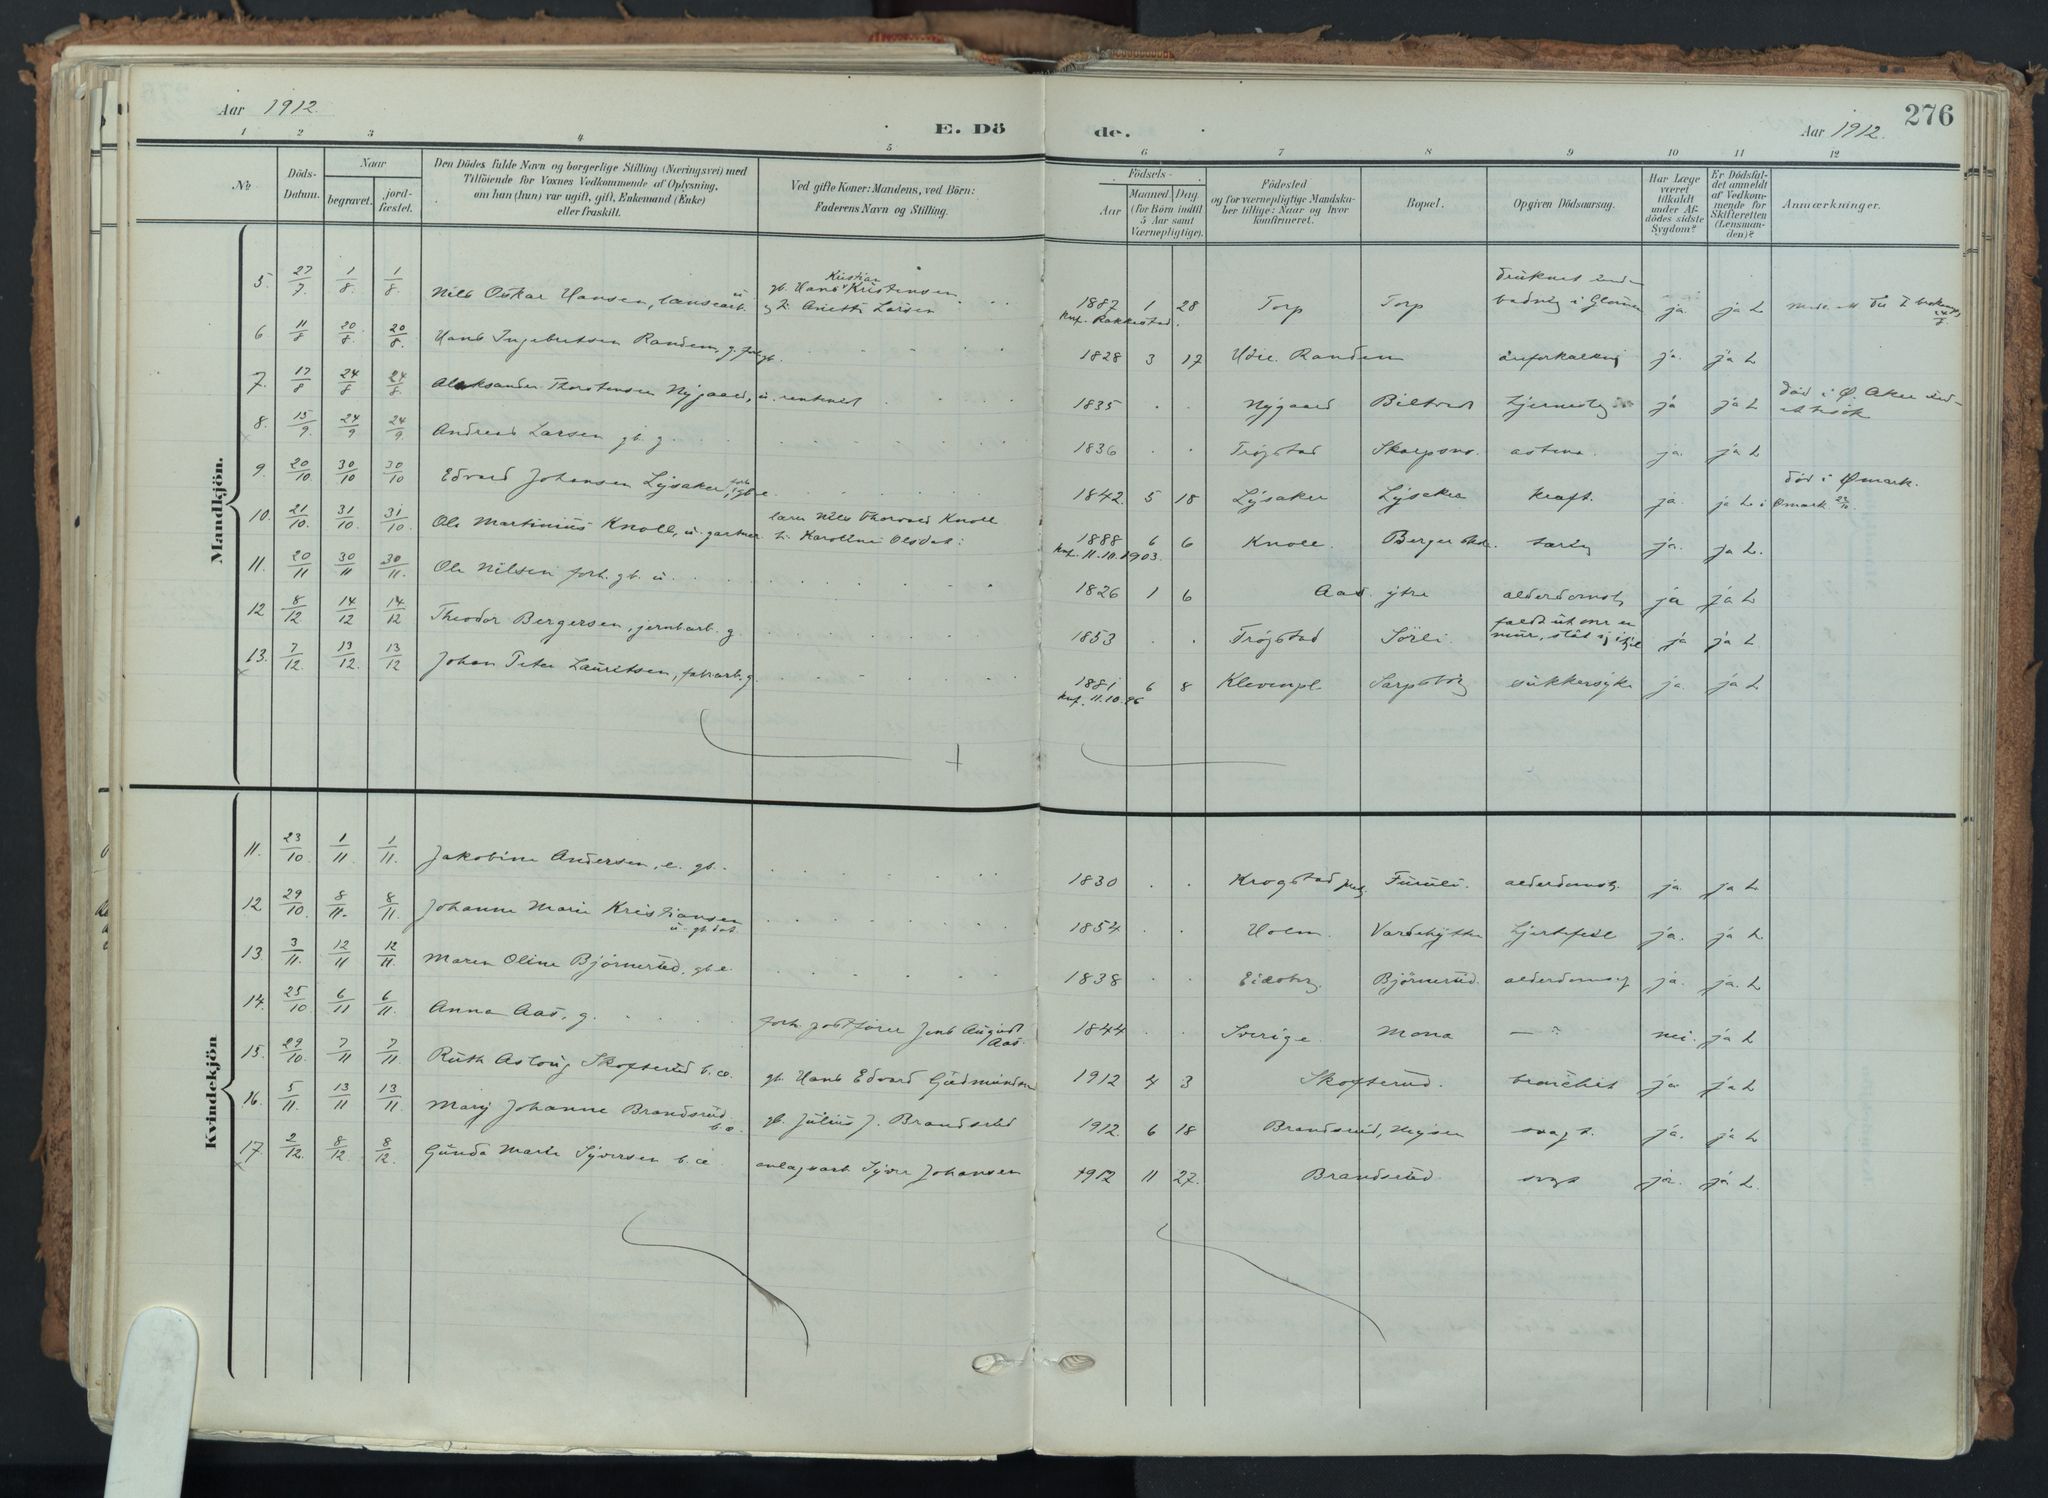 Aar 1912.
E. Dö
de.
Aar 1912.
276
1 2 3 4 5 6 7 8 9 10 11 12
No
Döds-Datum.
Naar
begravet.
jord-fæstet.
Den Dödes fulde Navn og borgerlige Stilling (Næringsvei) med
Tilföiende for Voxnes Vedkommende af Oplysning,
om han (hun) var ugift, gift, Enkemand (Enke)
eller fraskilt.
Ved gifte Koner: Mandens, ved Börn:
Faderens Navn og Stilling.
Födsels-
Aar
Maaned
Dag
(for Börn indtil
5 Aar samt
Værnepligtige).
Födested
og for værnepligtige Mandska-
ber tillige: Naar og hvor
konfirmeret.
Bopæl.
Opgiven Dödsaarsag.
Har Læge
været
tilkaldt
under Af-
dödes sidste
Sygdom?
Er Dödsfal-
det anmeldt
af Vedkom-
mende for
Skifteretten
(Lensman-
den)?
Anmærkninger.
Mandkjön.
5. 27/7 1/8 1/8 Nils Oskar Hansen, lensearb. u gb. Hans Kristian Kristensen og h. Anette Larsen 1887 1 28 Konf. Rakkestad. Torp Torp druknet under badning i Glommen ja ja L
6 11/8 20/8 20/8 Hans Ingebretsen Randem, g. forh. gb. 1828 3 17 Hdie. Randem åreforkalkning ja. ja L
7. 17/8 24/8 24/8 Aleksander Thorstensen Nygaard, u. rentenist 1835 Nygaard hjernesl. ja ja L död i Ø. Aker
8. 15/9 24/9 24/9 Andreas Larsen gb. g. 1836 Trøgstad Skarpsno. astma. ja. ja L
9 20/10 30/10 30/10 Edvard Johansen Lysaker, forh. gb. e. 1842. 5 18 Lysaker Lysaker kræft. ja. ja L i Ømark 22/10 död i Ømark.
10. 21/10. 31/10 31/10 Ole Martinius Knoll, u. gartner lærer Nils Thorvald Knoll h. Karoline Olsdat: 1888 6 6 Knf. 11.10.1903. Knoll. Berger skole. tæring ja. ja L.
11. 20/11 30/11 30/11. Ole Nilsen forh. gb. u. 1826 1 6 Aas ytre alderdomssl. ja ja L
12 8/12 14/12 14/12 Theodor Bergersen, jernbarb. g. 1853 Trøgstad Sörli faldt utover en mur, slåt sig ihjel ja ja L
13. 7/12. 13/12. 13/12 Johan Peter Lauritsen, fabrarb. g. 1881 6 8 knf. 11.10.96 Klevenpl. Sarpsborg sukkersyke ja. ja L
Kvindekjön
11. 23/10. 1/11 1/11. Jakobine Andersen, e. gb. 1830 Krogstad Furuli. alderdomssl. ja ja L
12 29/10. 8/11. 8/11. Johanne Marie Kristiansen u. gb. dat. 1854 Holm. Vardehytta hjertefeil ja. ja L
13 3/11. 12/11 12/11. Maren Oline Bjørnerud, gb. e. 1838 Eidsberg. Björnerud. alderdomssl. ja. ja. L
14. 25/10 6/11 6/11. Anna Aas, g. forh. postfører Jens August Aas. 1844 Sverige. Mona — nei. ja L
15. 29/10. 7/11 7/11 Ruth Aslaug Skofterud b. æ. gb. Hans Edvard Gudmundsen 1912 4 3 Skofterud. bronchit ja ja L
16. 5/11. 13/11 13/11 Mary Johanne Brandsrud. b. æ. gb. Julius J. Brandsrud 1912. 6 18 Brandsrud, Mysen svagt. ja. ja L
17. 2/12. 8/12. 8/12. Gunda Marie Syversen b. æ anlægsarb Syver Johansen 1912 11 27. Brandsrud. svagt ja. ja L